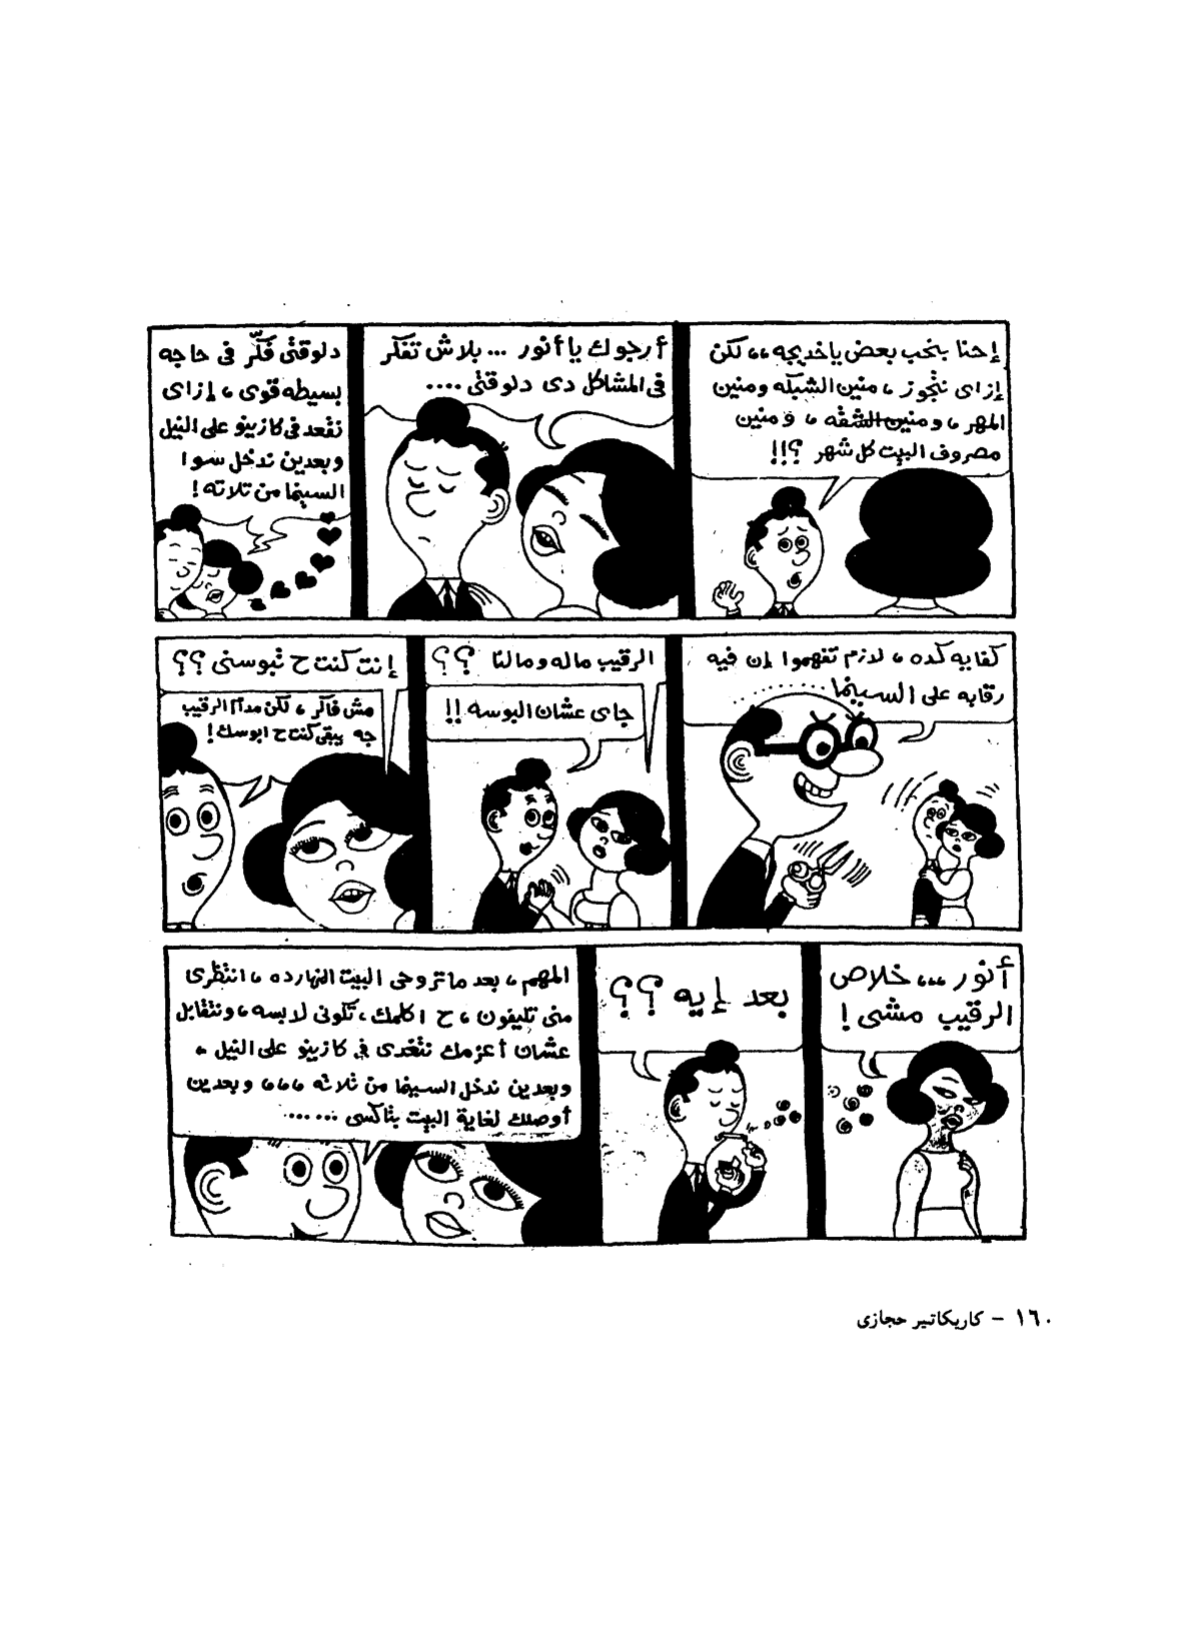 إحنا بنحب بعض يا خديجه،، لكن
إزاى نتجوز، منين الشبكه ومنين
المهر، ومنين الشقه، ومنين
مصروف البيت كل شهر ؟!!
أرجوك يا أنور ... بلاش تفكر
فى المشاكل دى دلوقتى ....
دلوقتى فكّر فى حاجه
بسيطه قوى، إزاى
نقعد فى كازينو على النيل
وبعدين ندخل سوا
السينما من تلاته !
كفايه كده، لازم تفهموا إن فيه
رقابه على السينما........
الرقيب ماله ومالنا ؟؟
جاى عشان البوسه !!
إنت كنت ح تبوسنى ؟؟
مش فاكر، لكن مدام الرقيب
جه يبقى كنت ح ابوسك !
أنور ،،، خلاص
الرقيب مشى !
بعد إيه ؟؟
المهم، بعد ما تروحى البيت النهارده، انتظرى
منى تليفون، ح اكلمك، تكونى لابسه، ونتقابل
عشان أعزمك نتغدى فى كازينو على النيل،
وبعدين ندخل السينما من تلاته ،،، وبعدين
أوصلك لغاية البيت بتاكسى ......
١٦٠ – كاريكاتير حجازى